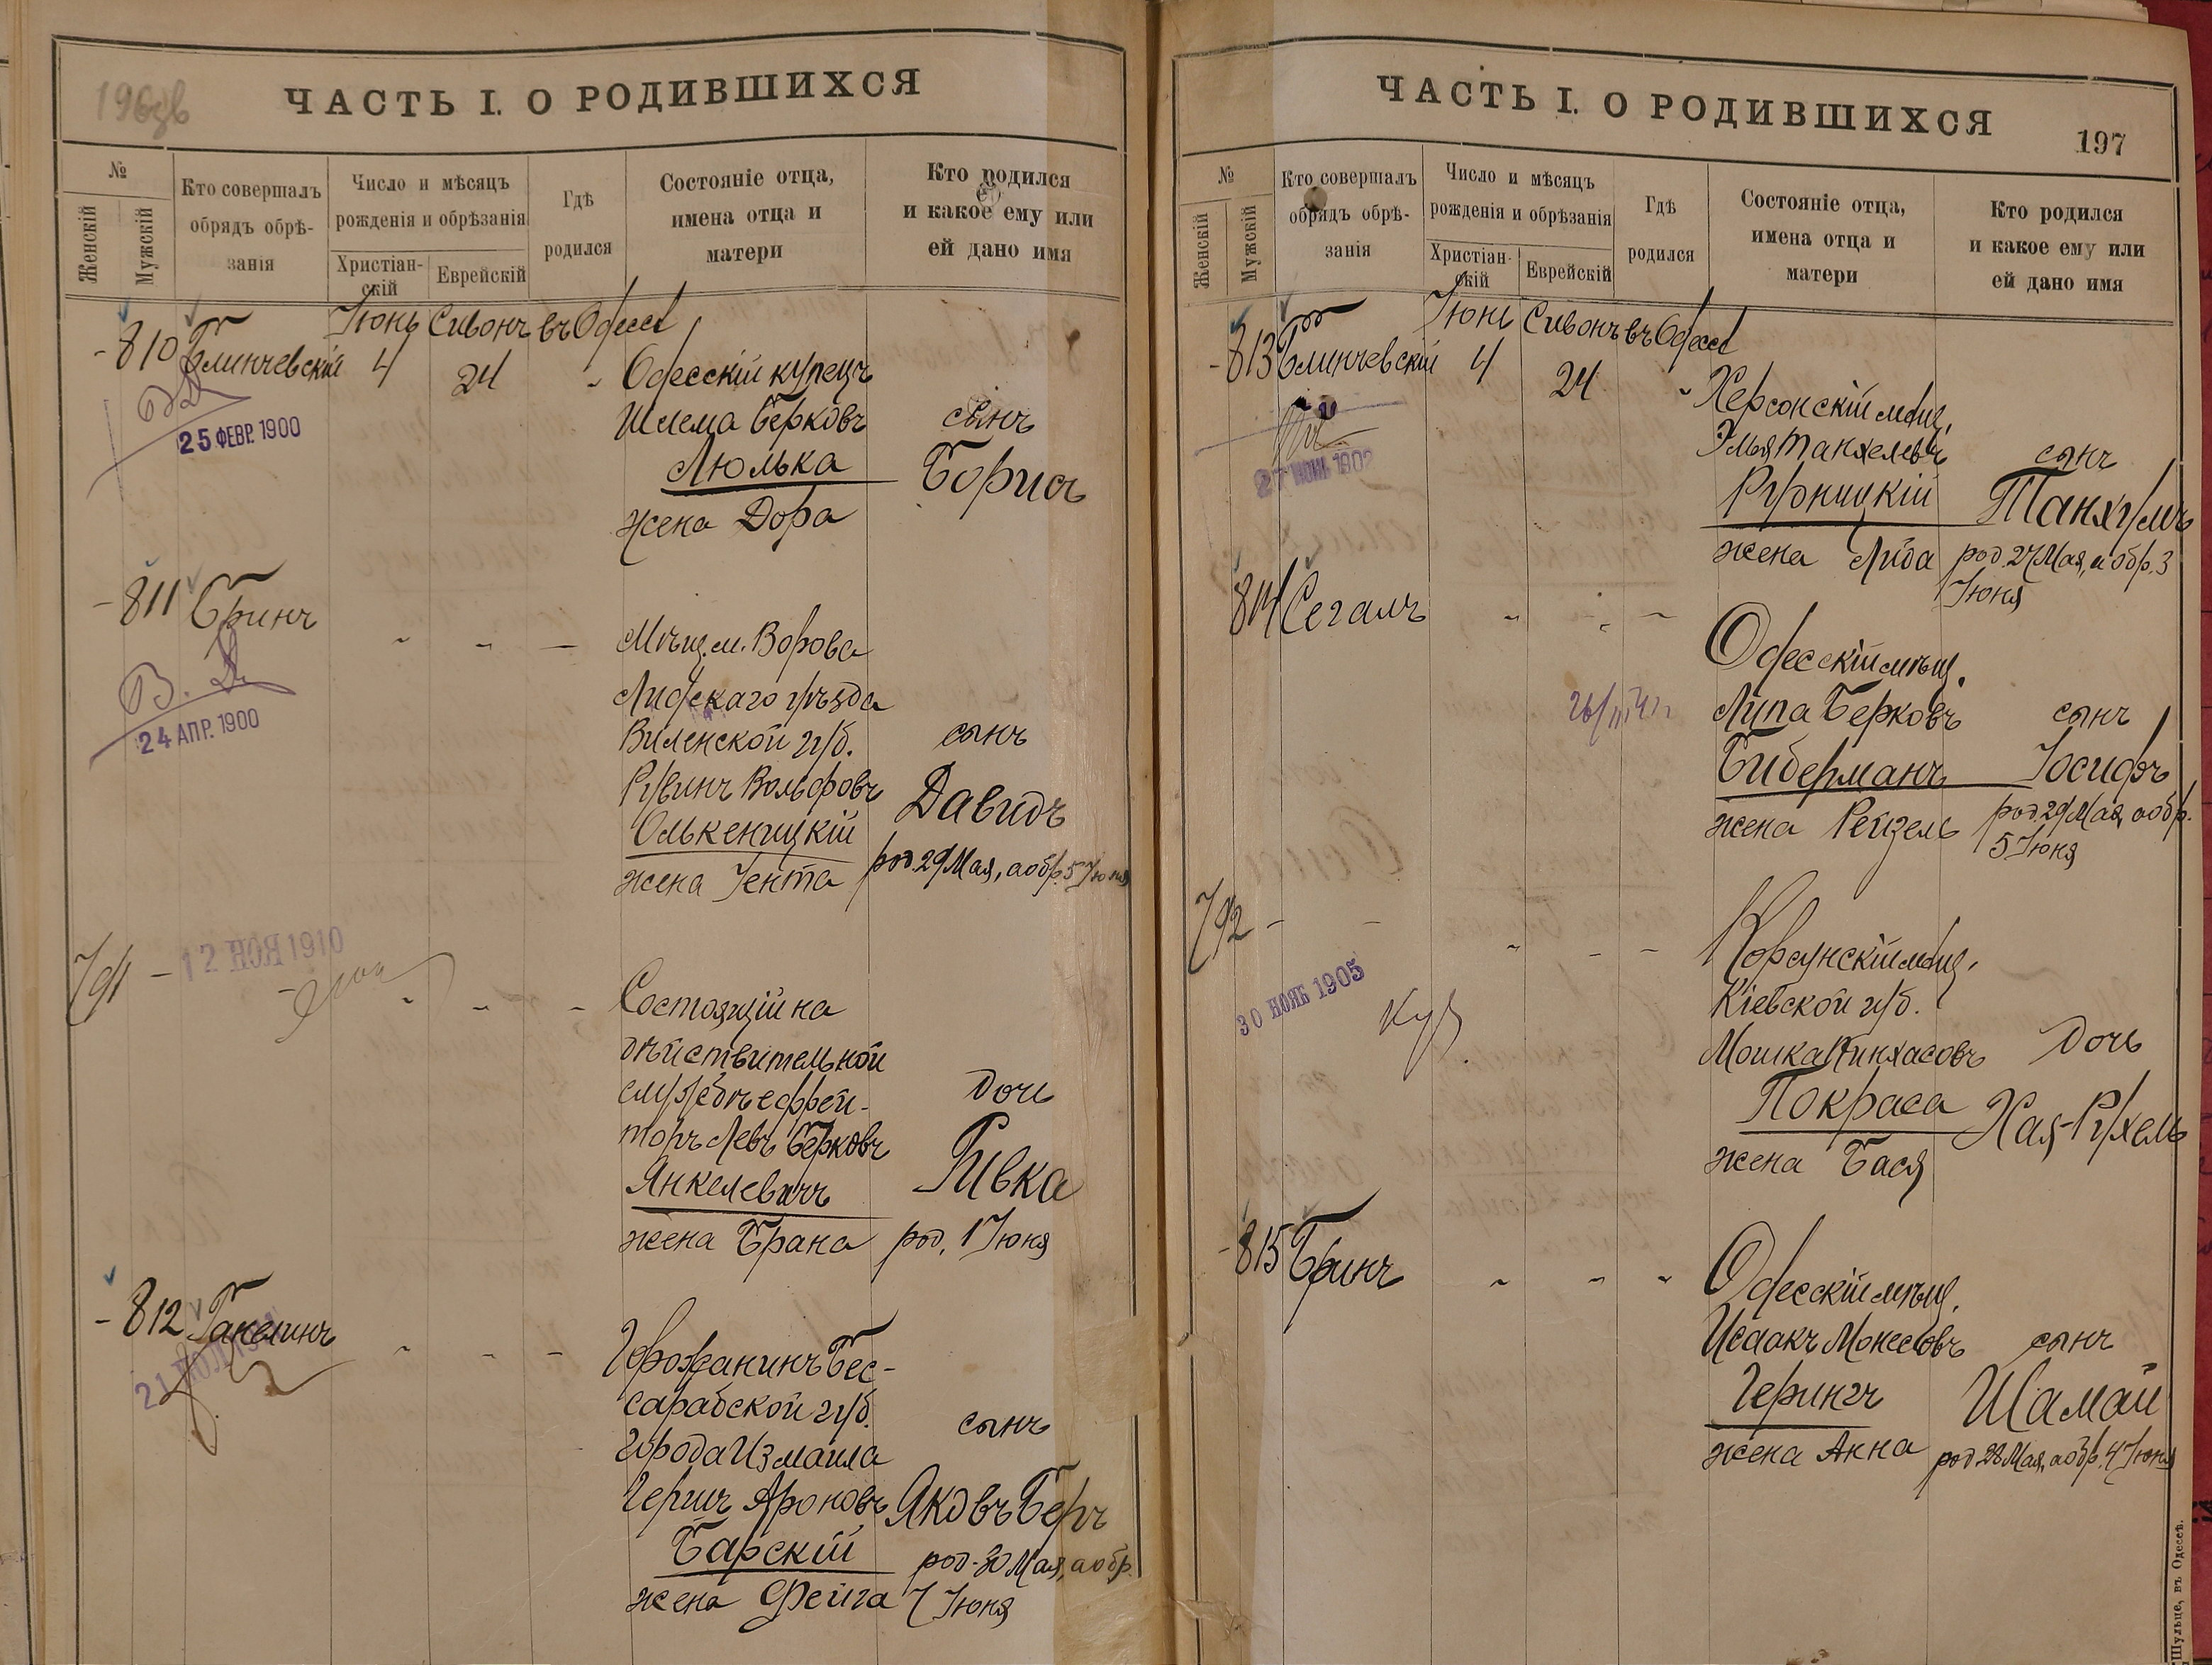 196об
ЧАСТЬ I. О РОДИВШИХСЯ
№
Женскій
Мужскій
Кто совершалъ
обрядъ обрѣ-
занія
Число и мѣсяцъ
рожденія и обрѣзанія
Христіан-
скій
Еврейскій
Гдѣ
родился
Состояніе отца,
имена отца и
матери
Кто родился
и какое ему или
ей дано имя
Іюнь Сивонъ въ Одессѣ
-810 Блинчевскій 4 24 "
25 ФЕВР. 1900
Одесскій купецъ
Шлема Берковъ
Люлька
жена Дора
сынъ
Борисъ
-811 Бринъ " " —
24 АПР. 1900
Мѣщ. м. Ворова
Лидскаго уѣзда
Виленской губ.
Рувинъ Вольфовъ
Олькеницкій
жена Іента
сынъ
Давидъ
род. 29 Мая, а обр. 5 Іюня
791 — " " —
12 НОЯ 1910
Состоящій на
дѣйствительной
службѣ ефрей-
торъ Левъ Берковъ
Янкелевичъ
жена Брана
дочь
Ривка
род. 1 Іюня
-812 Гапелинъ " " —
Горожанинъ Бес-
сарабской губ.
города Измаила
Гершъ Ароновъ
Барскій
жена Фейга
сынъ
Яковъ Беръ
род. 30 Мая, а обр.
7 Іюня
ЧАСТЬ I. О РОДИВШИХСЯ
197
№
Женскій
Мужскій
Кто совершалъ
обрядъ обрѣ-
занія
Число и мѣсяцъ
рожденія и обрѣзанія
Христіан-
скій
Еврейскій
Гдѣ
родился
Состояніе отца,
имена отца и
матери
Кто родился
и какое ему или
ей дано имя
Іюнь Сивонъ въ Одессѣ
-813 Блинчевскій 4 24 "
1902
Херсонскій мѣщ.
Элья Танхелевъ
Рудницкій
жена Лида
сынъ
Танхумъ
род. 27 Мая, а обр. 3
Іюня
814 Сегалъ " " —
Одесскій мѣщ.
Липа Берковъ
Биберманъ
жена Рейзель
сынъ
Іосифъ
род. 29 Мая, а обр.
5 Іюня
792 — — " — —
30 НОЯБ 1905
Корсунскій мѣщ.
Кіевской губ.
Мошка Пинхасовъ
Покраса
жена Бася
дочь
Хая-Рухель
-815 Бринъ " — "
Одесскій мѣщ.
Исаакъ Монесовъ
Герингъ
жена Анна
сынъ
Шамай
род. 28 Мая, а обр. 4 Іюня
Шульце, въ Одессѣ.